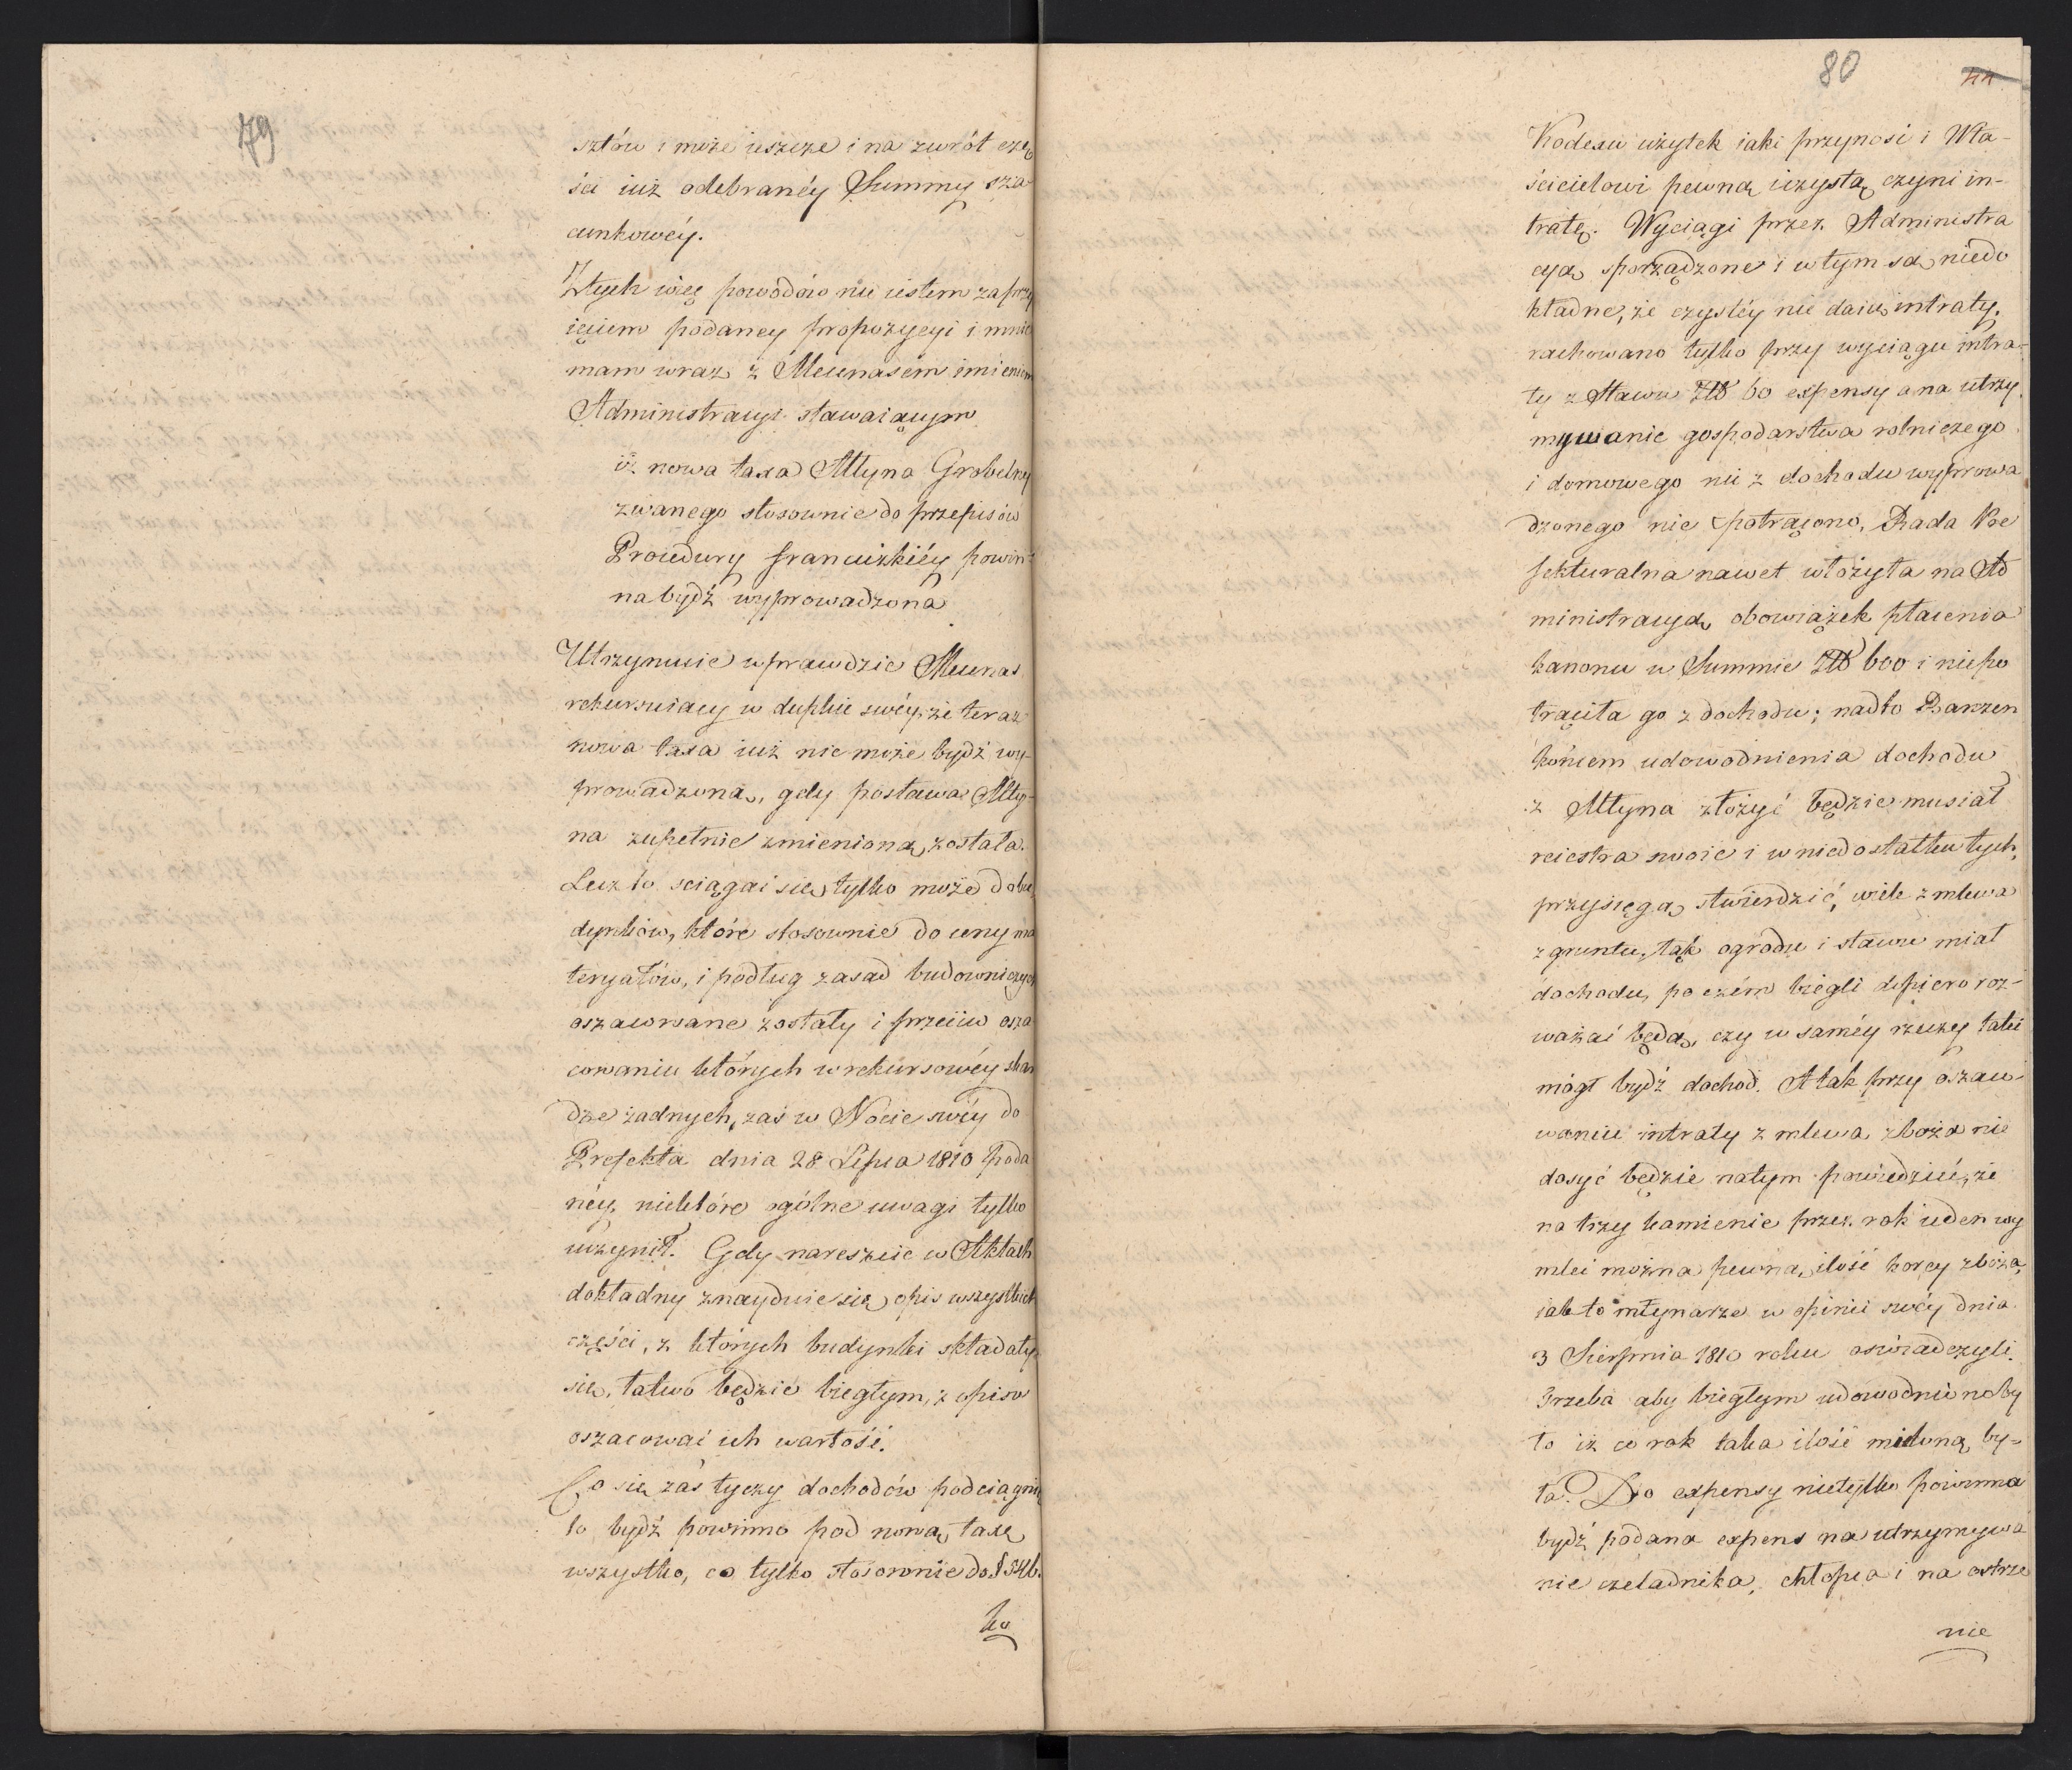 79
sztów i może ieszcze i na zwrót czę
ści iuż odebranéy Summy sza
cunkowéy.
Z tych więc powodów nie iestem za przy
ięciem podaney propozycyi i mnie
mam wraz z Mecenasem imieniem
Administracyi stawaiącym
iż nowa taxa Młyna Grobelny
zwanego stosownie do przepisów
Procedury francuzkiéy powin-
na bydź wyprowadzona
Utrzymuie wprawdzie Mecenas
rekursuiący w duplice swéy, że teraz
nowa taxa iuż nie może bydź wy-
prowadzoną, gdy postawa Mły-
na zupełnie zmienioną została.
Lecz to sciągać się tylko może do bu
dynków, które stosownie do ceny ma
teryałów, i podług zasad budowniczych
oszacowane zostały i przeciw osza
cowaniu których w rekursowéy skar
dze żadnych, zaś w Nocie swéy do
Prefekta dnia 28 Lipca 1810 poda
néy, niektóre ogólne uwagi tylko
uczynił. Gdy nareszcie w Aktach
dokładny znayduie się opis wszystkich
części, z których budynki składały
się, łatwo będzie biegłym, z opisu
oszacować ich wartość.
Co się zaś tyczy dochodów podciągnię
to bydź powinno pod nową taxę
wszystko, co tylko stosownie do § 546.
ko
80
44
Kodexu użytek iaki przynosi i Wła-
ścicielowi pewną i czystą czyni in-
tratę. Wyciągi przez Administra
cyą sporządzone i w tym są niedo
kładne, że czystéy nie daią intraty.
rachowano tylko przy wyciągu intra-
ty z Stawu Złł 60 expensy a na utrzy
mywanie gospodarstwa rolniczego
i domowego nic z dochodu wyprowa
dzonego nie potrącono, Rada Pre
fekturalna nawet włożyła na Ad
ministracyą obowiązek płacenia
kanonu w Summie Złł 600 i niepo
trąciła go z dochodu; nadto Barzen
końcem udowodnienia dochodu
z Młyna złożyć będzie musiał
reiestra swoie i w niedostatku tych,
przysięgą stwierdzić, wiele z mlewa
z gruntu, łąk ogrodu i stawu miał
dochodu, po czém biegli dopiero roz-
ważać będą, czy w saméy rzeczy taki
mógł bydź dochod. A tak przy oszaco-
waniu intraty z mlewa zboża nie
dosyć będzie na tym powiedzieć, że
na trzy kamienie przez rok ieden wy
mleć można pewną ilość korcy zboża,
iak to młynarze w opinii swéy dnia
3 Sierpnia 1810 roku oświadczyli.
Trzeba aby biegłym udowodniono by
to iż co rok taka ilość mieloną by-
ła. Do expensy nietylko powinna
bydź podana expens na utrzymywa
nie czeladnika, chłopca i na ostrze
nie